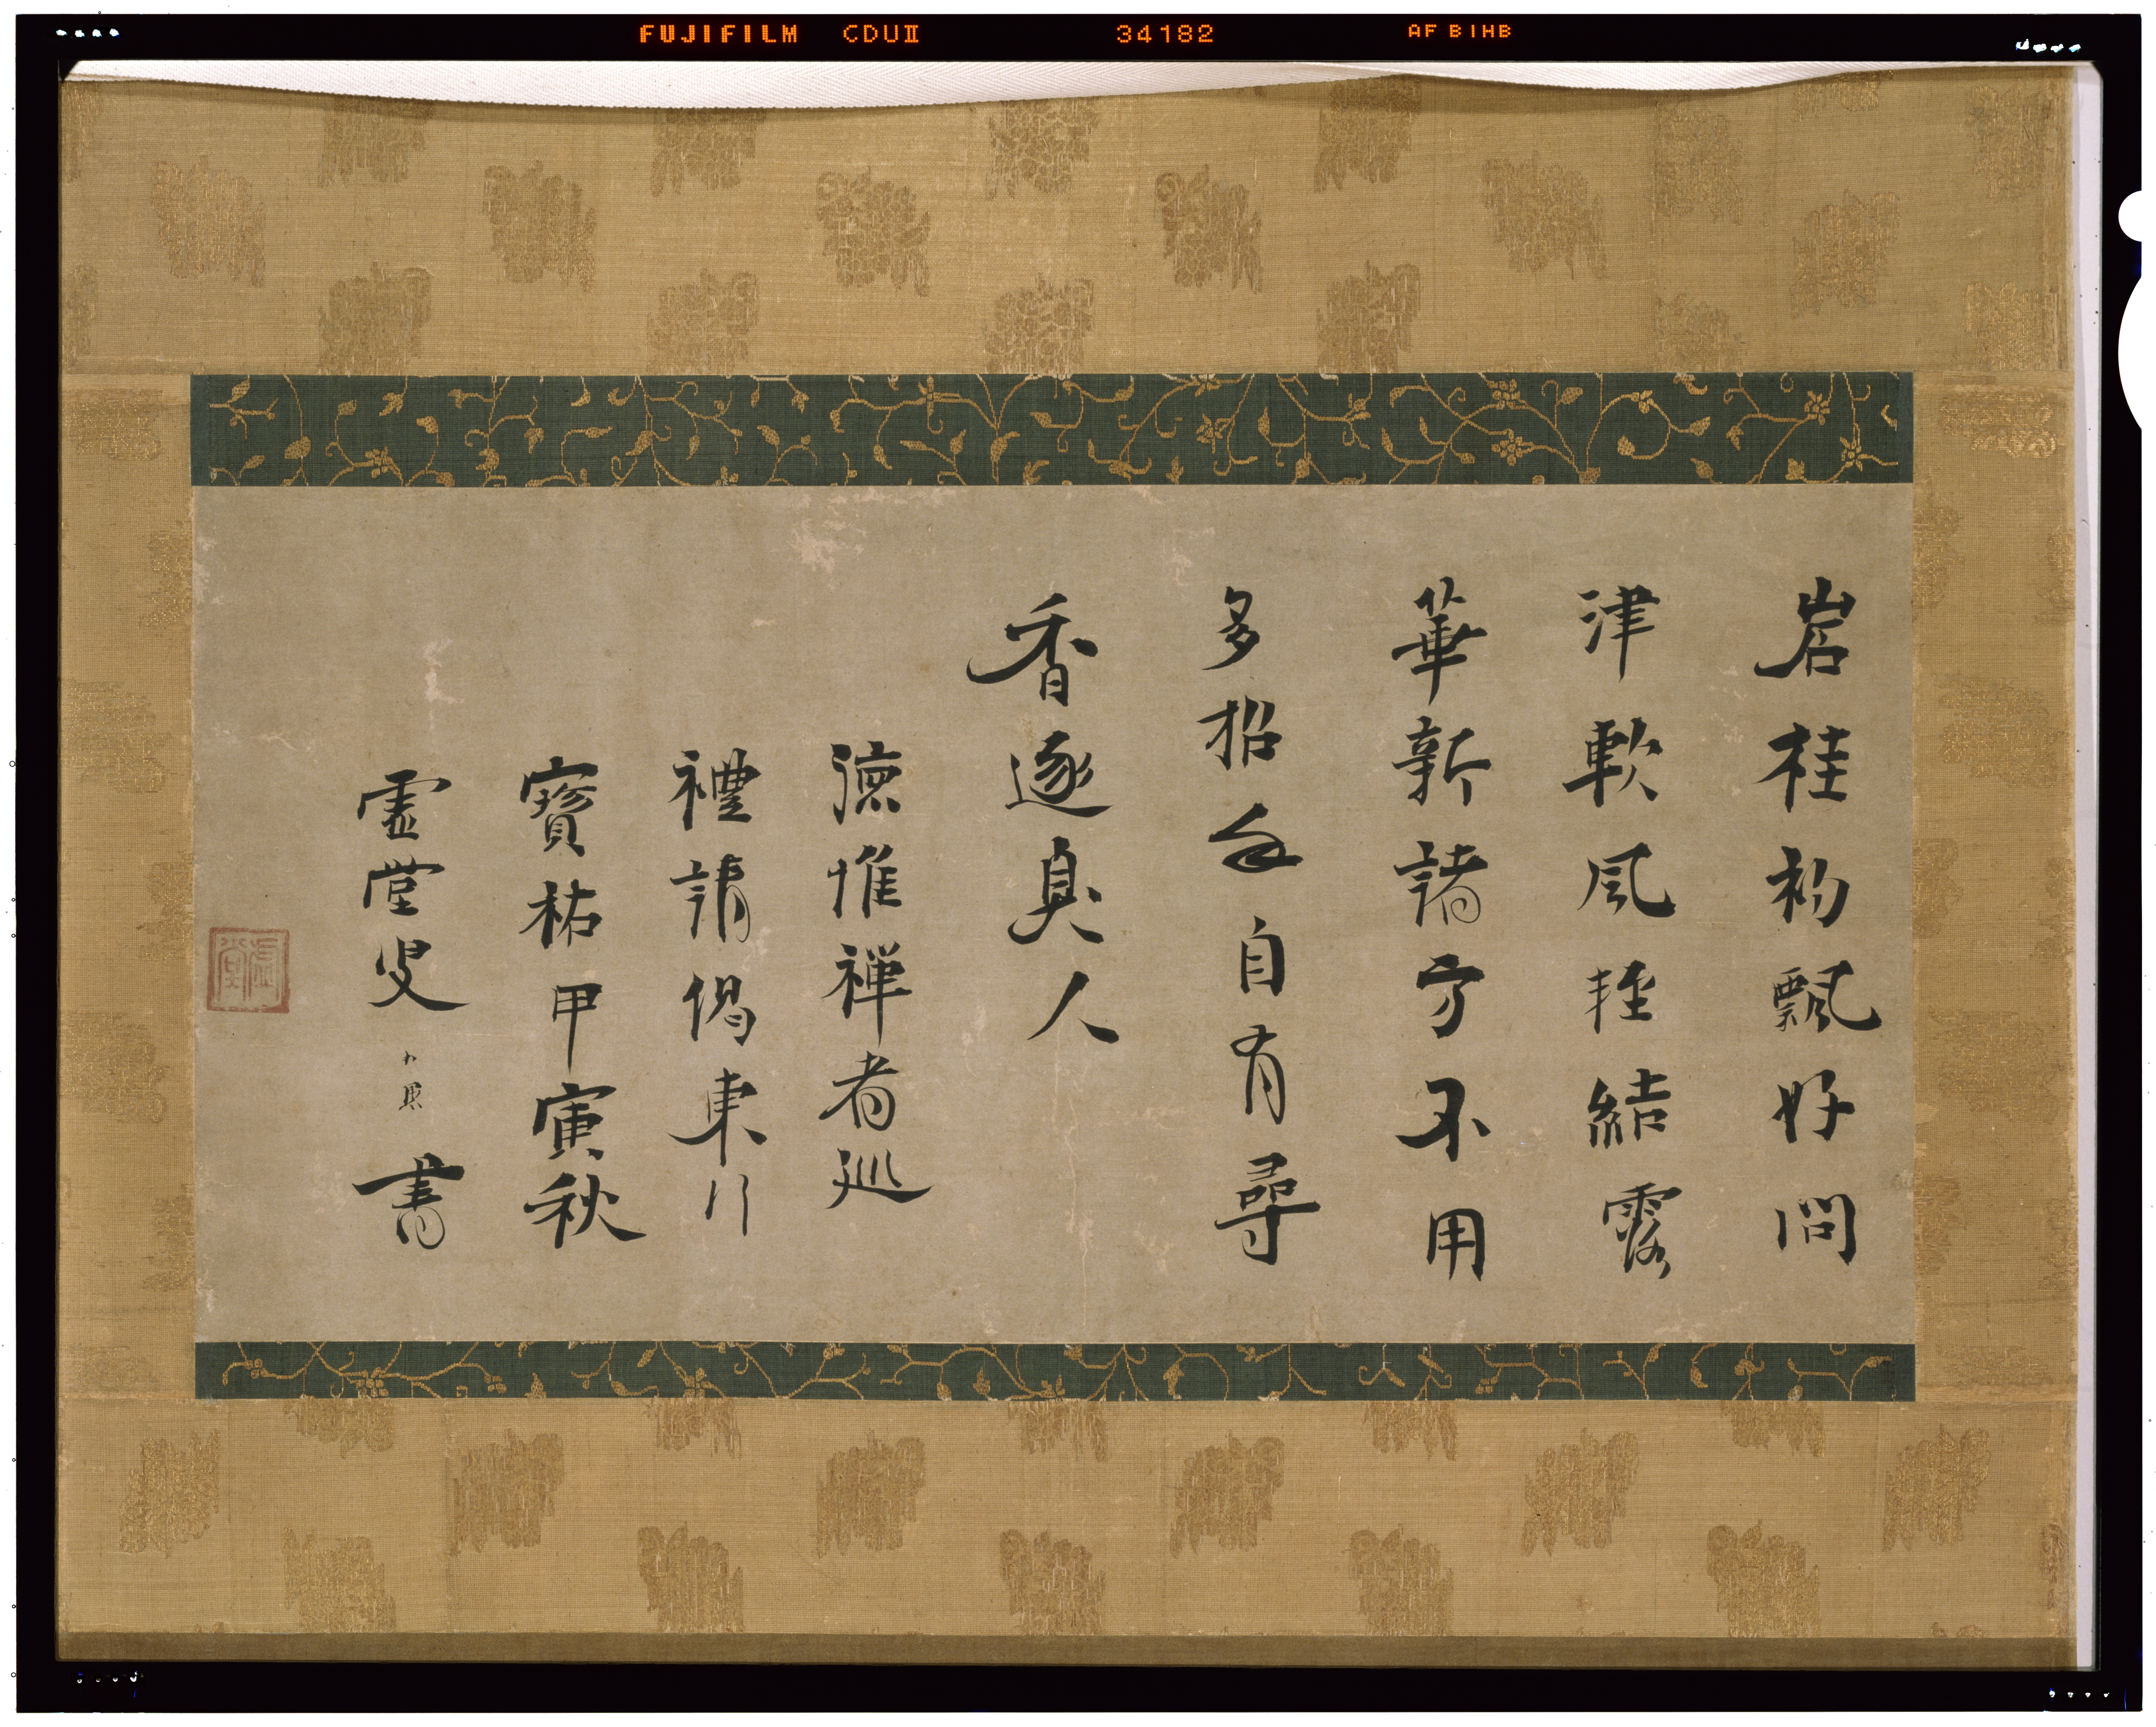 FUJIFILM CDUII 34182 AF BIHB
岩桂初飄好問
津軟風輕結露
華新諸方不用
多招手自有尋
香逐臭人
德惟禅者巡
禮請偈東行
寶祐甲寅秋
虛堂叟 書
虛堂